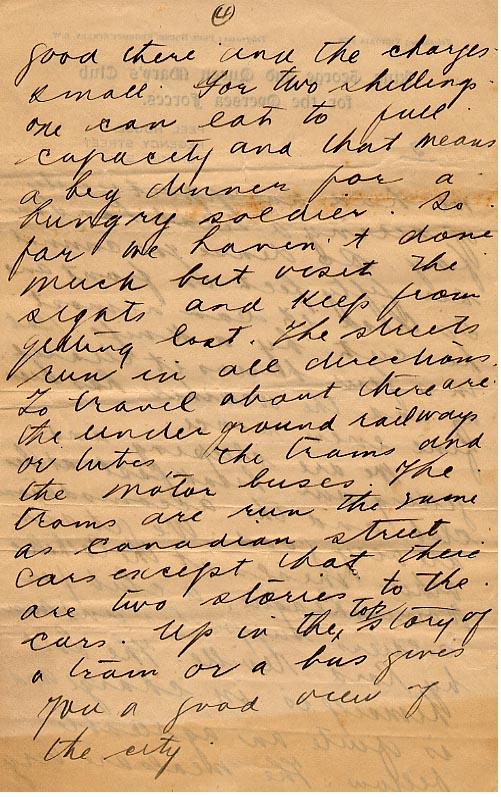 4
good there and the charges
small. For two shillings
one can eat to full
capacity and that means
a big dinner for a
hungry soldier. So
far we haven't done
much but visit the
sights and keep from
getting lost. The streets
run in all directions.
To travel about there are
the under ground railways
or tubes, the trams and
the motor buses. The
trams are run the same
as canadian street
cars except that there
are two stories to the
cars. Up in the top story of
a tram or a bus gives
you a good view of
the city.